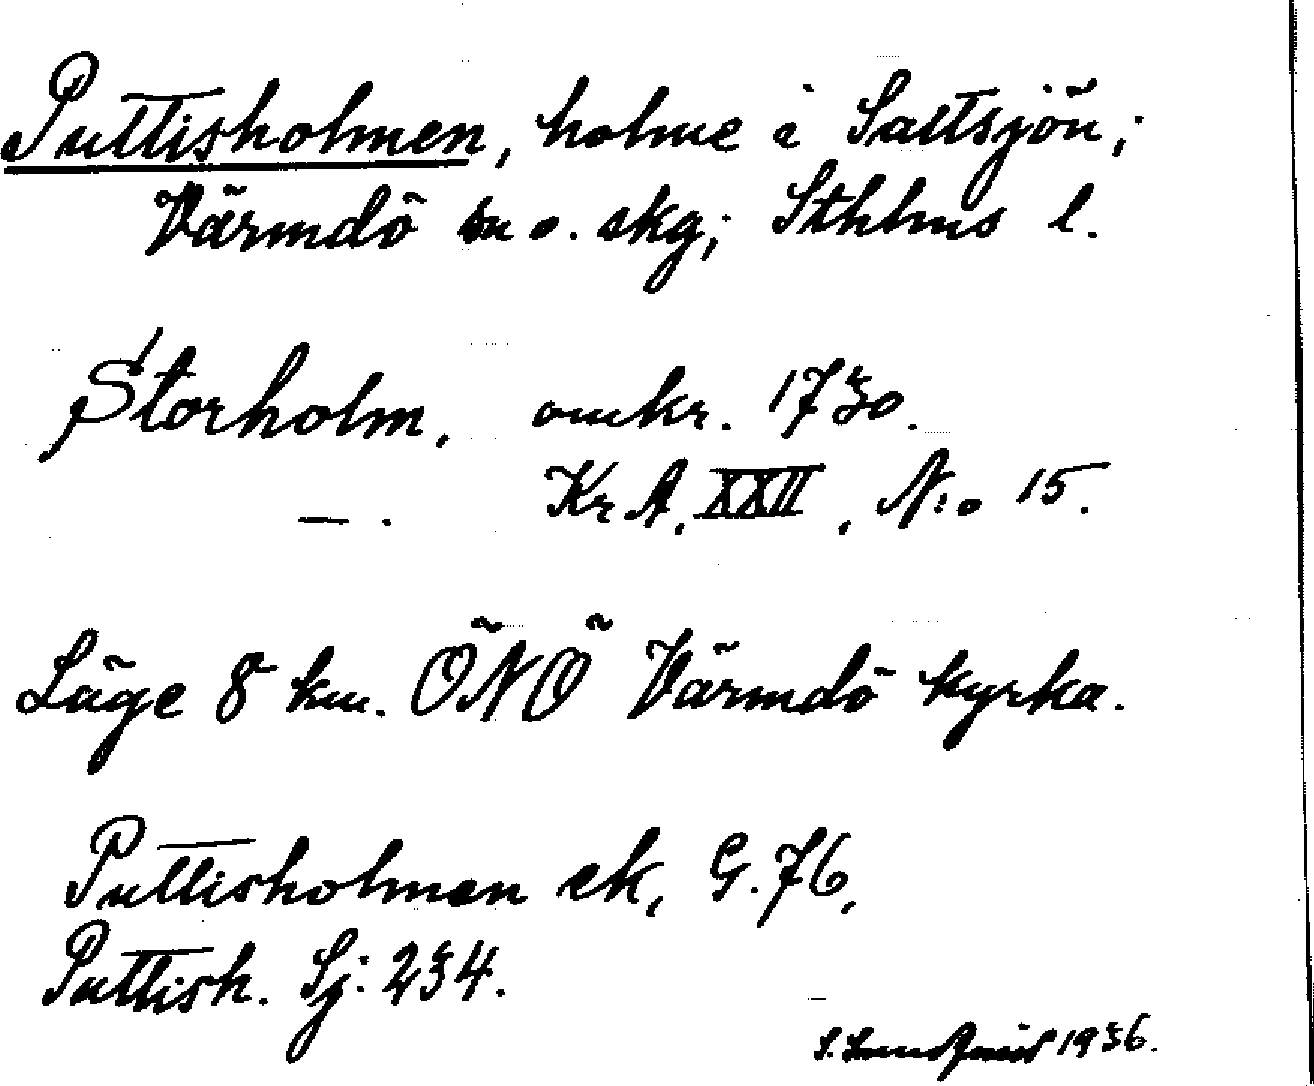 Puttisholmen, holme i Saltsjön;
Värmdö sn o. skg; Sthlms l.
Storholm, omkr. 1730.
—. Kr A, XXII, N:o 15.
Läge 8 km. ÖNÖ Värmdö kyrka.
Puttisholmen ek, G. 76,
Puttish. Sj: 234.
1936.